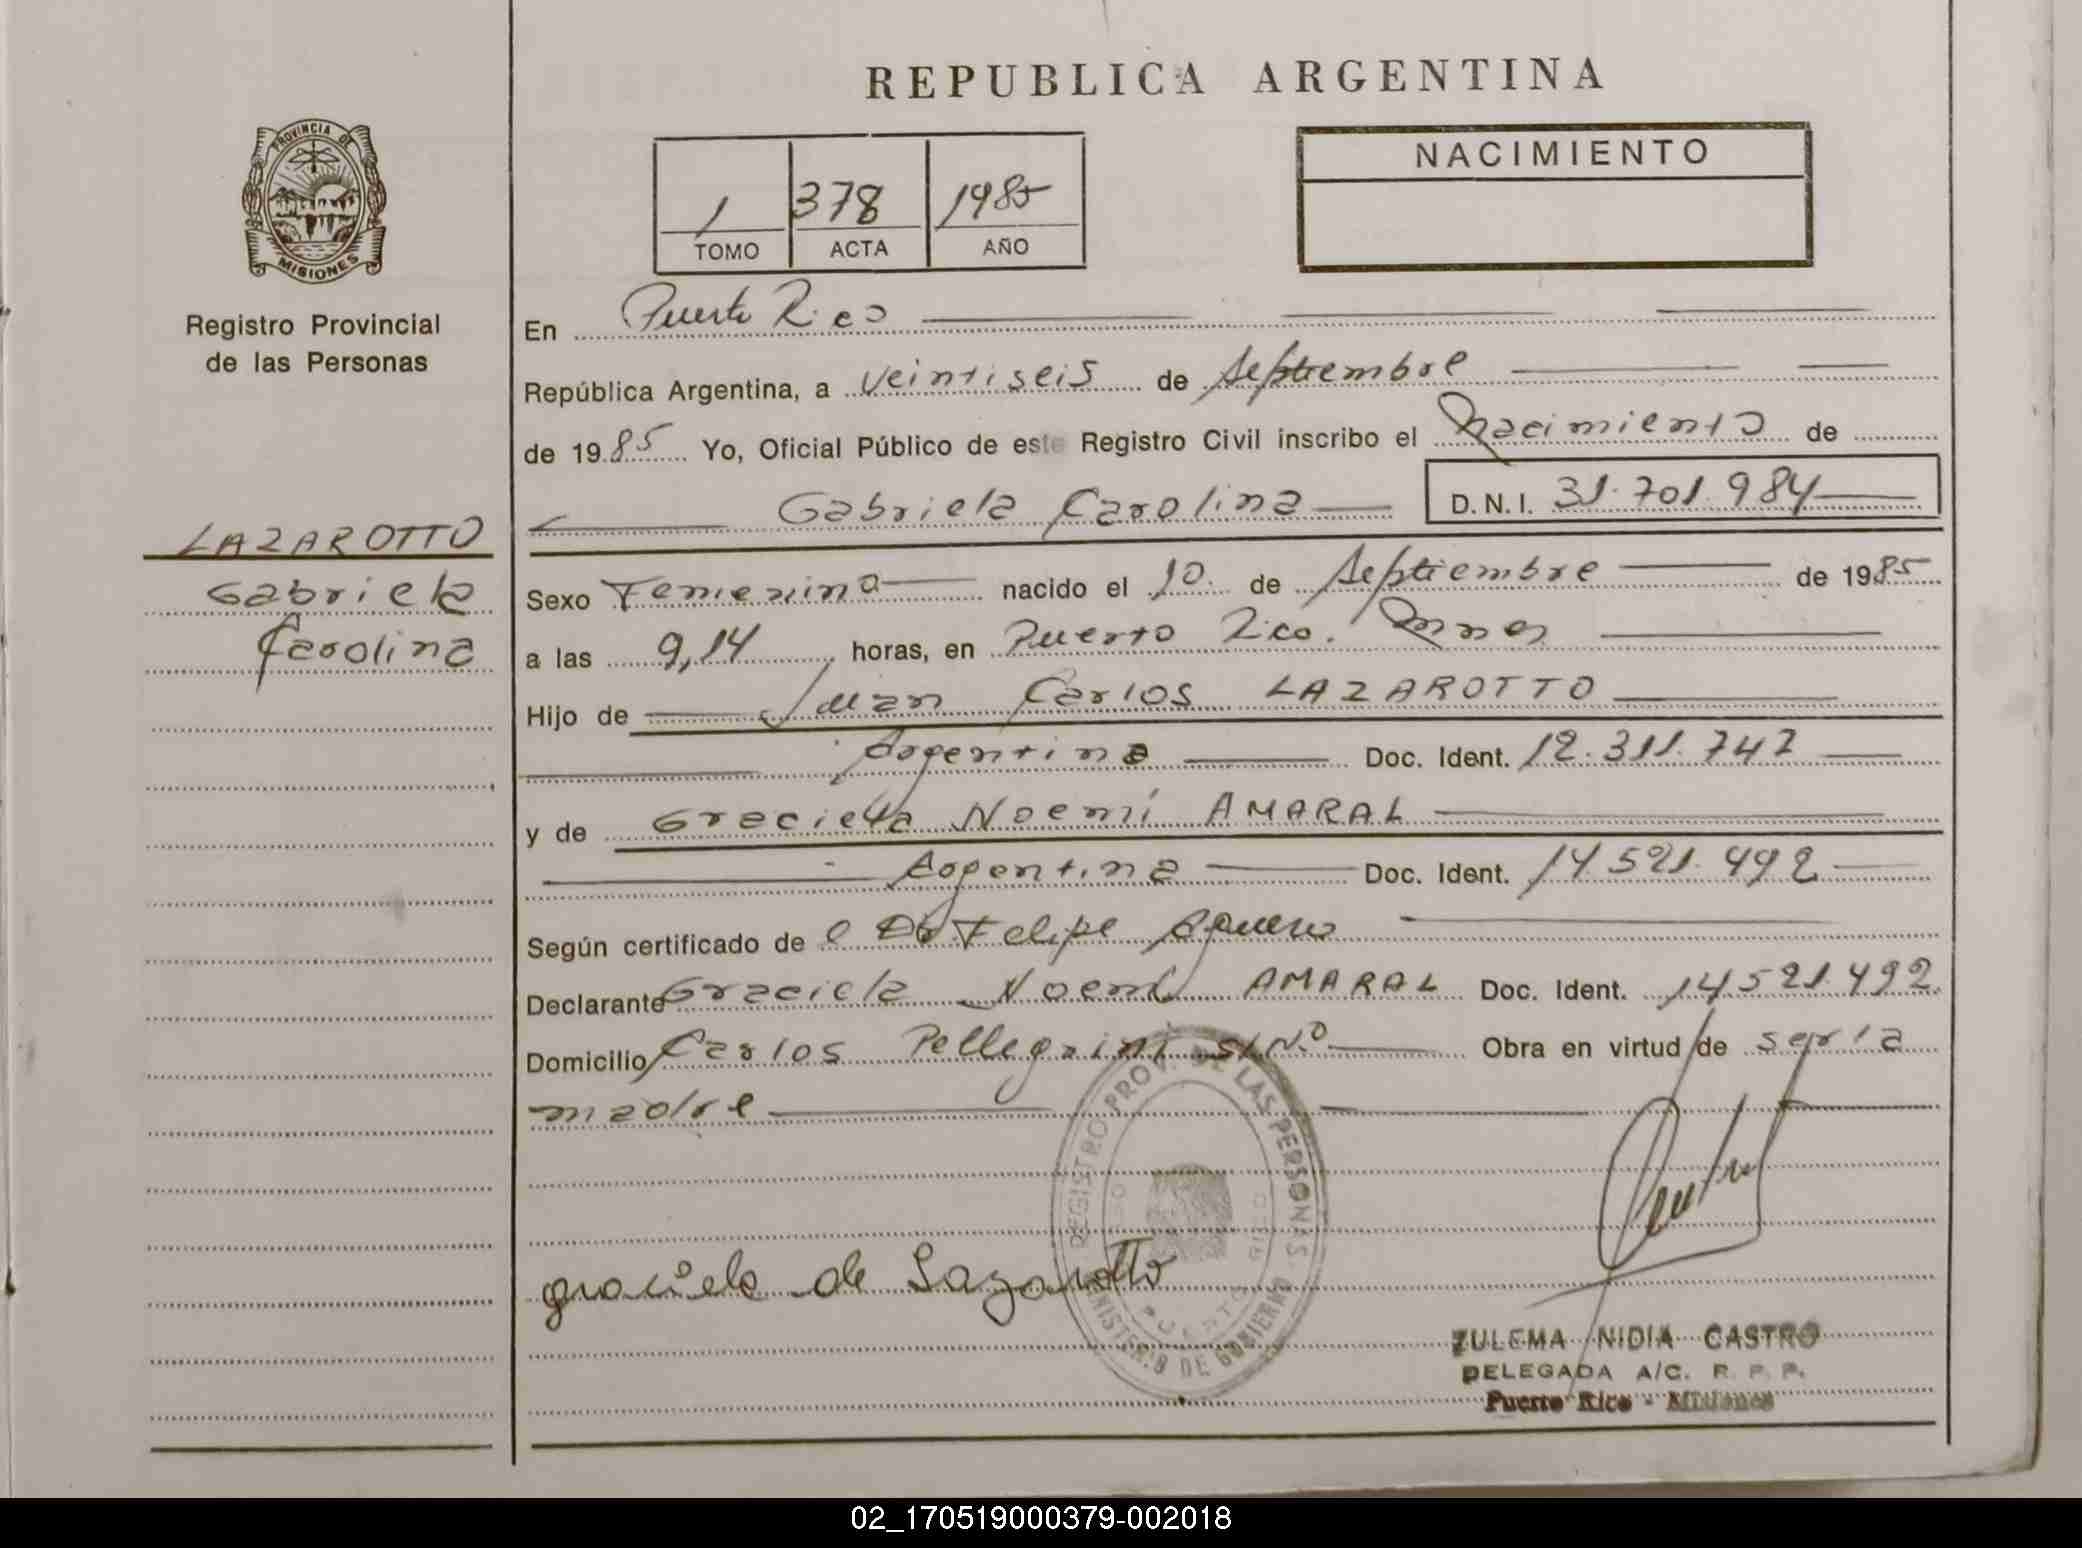 REPUBLICA ARGENTINA
PROVINCIA DE
MISIONES
Registro Provincial
de las Personas
LAZAROTTO
Gabriela
Carolina
1 378 1985
TOMO ACTA AÑO
NACIMIENTO
En Puerto Rico
República Argentina, a veintiseis de Septiembre
de 1985 Yo, Oficial Público de este Registro Civil inscribo el Nacimiento de
Gabriela Carolina D.N.I. 31.701.984
Sexo Femenino nacido el 10 de Septiembre de 1985
a las 9,14 horas, en Puerto Rico. Mnes
Hijo de Juan Carlos LAZAROTTO
Argentino Doc. Ident. 12.311.747
y de Graciela Noemí AMARAL
Argentina Doc. Ident. 14.521.492
Según certificado de Dr Felipe Aguero
Declarante Graciela Noemí AMARAL Doc. Ident. 14.521.492
Domicilio Carlos Pellegrini S/Nº Obra en virtud de ser la
madre
REGISTRO PROV. DE LAS PERSONAS
MINISTERIO DE GOBIERNO
PUERTO RICO
graciela de Lazarotto
ZULEMA NIDIA CASTRO
DELEGADA A/C. R. P. P.
Puerto Rico - Misiones
02_170519000379-002018